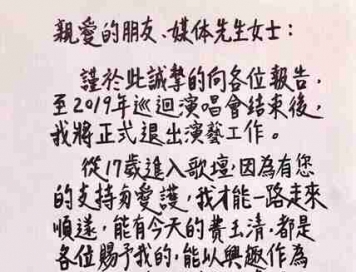 親愛的朋友、媒体先生女士：
謹於此誠摯的向各位報告，
至2019年巡迴演唱會結束後，
我將正式退出演藝工作。
從17歲進入歌壇，因為有您
的支持与愛護，我才能一路走來
順遂，能有今天的費玉清，都是
各位賜予我的，能以興趣作為